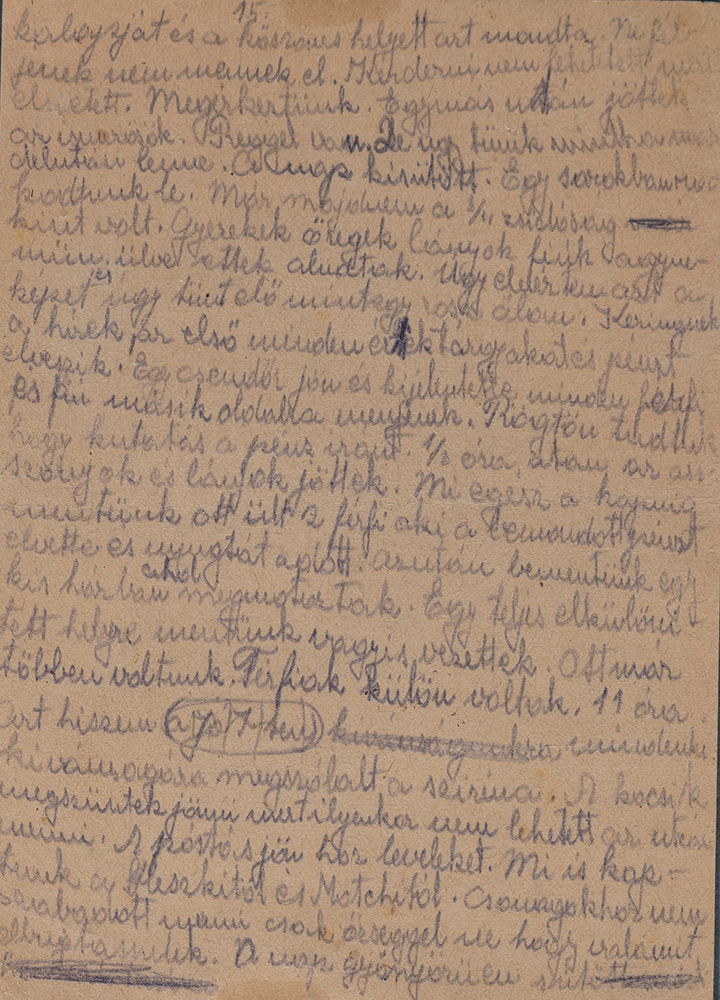 15.
kalapját és a köszönés helyett azt mondta. Ne fél-
jenek nem mennek el. Kérdezni nem lehetett mert
elsietett. Megérkeztünk. Egymás után jöttek
az ismerősök. Reggel van. De úgy tünik mintha már
délután lenne. A nap kisütött. Egy sarokban
kodtunk le. Már majdnem a 3/4 zsidóság
kint volt. Gyerekek öregek lányok fiúk
ülve ettek aludtak. Úgy elnéztem azt a
képet és úgy tünt elő mint egy rossz álom. Keringnek
a hírek, az első minden értéktárgyakat és pénzt
elveszik. Egy csendőr jön és kijelentette minden férfi
és fiú másik oldalra menjenek. Rögtön tudtuk
hogy kutatás a pénz iránt. 1/2 óra után az asz
szonyok és lányok jöttek. Mi egész a kapuig
mentünk ott ült 2 férfi aki a lemondott pénzt
elvette és nyugtát adott. azután bementünk egy
kis házban ahol megmotoztak. Egy teljes elküloní
tett helyre mentünk vagyis vezettek. Ott már
többen voltunk. Férfiak külön voltak. 11 óra
Azt hiszem a jó Isten mindenki
kívánságára megszólalt a sziréna. A kocsik
megszüntek jönni mert ilyenkor nem lehetett az utcán
menni. A póstás jön hoz leveleket. Mi is kap-
tunk a és Matchitól. Csomagokhoz nem
szabadott menni csak őrséggel ne hogy valamit
A nap gyönyörüen